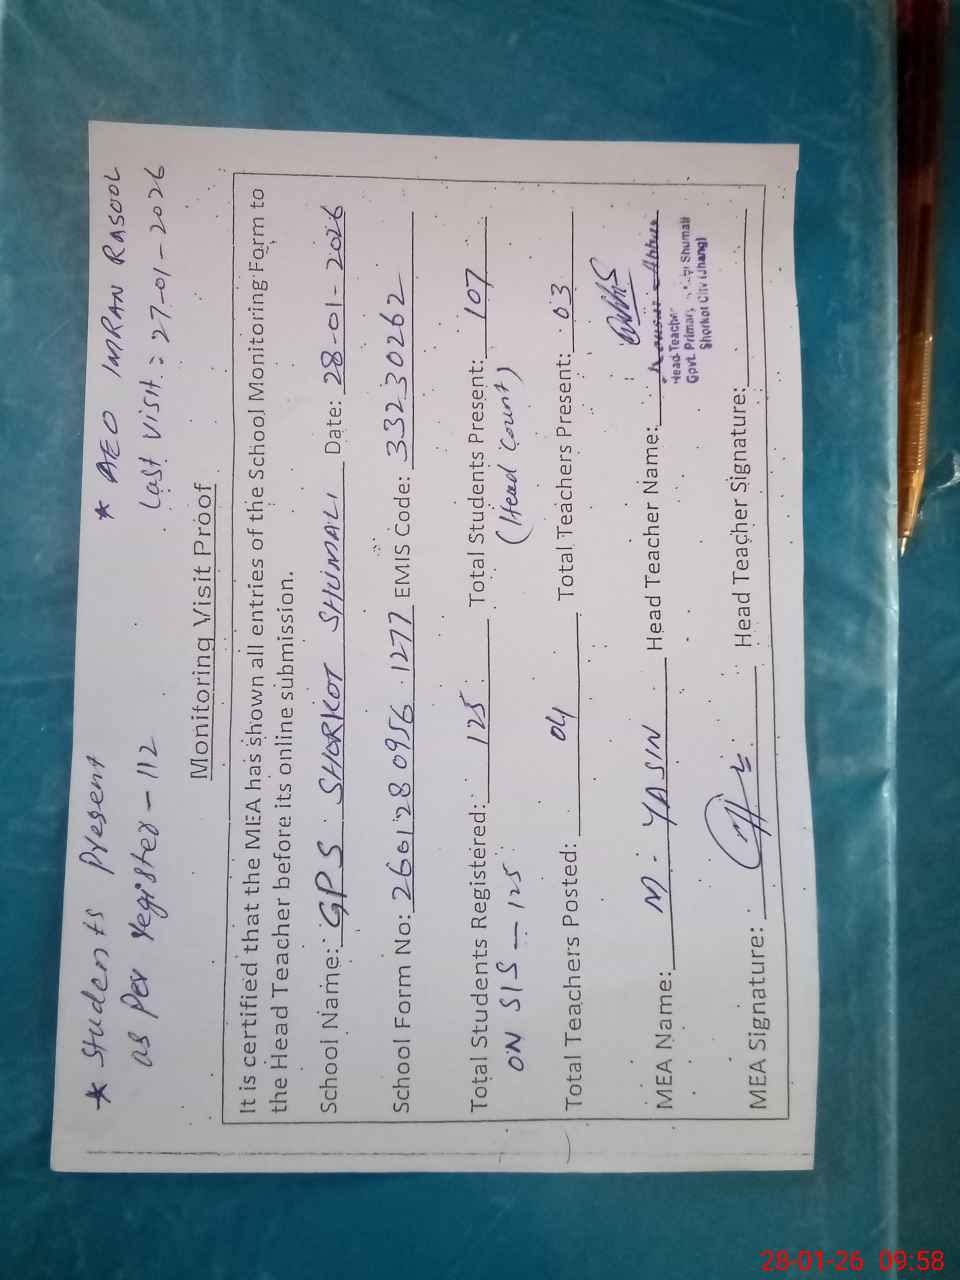 * Students Present
as per register - 112
* AEO IMRAN RASOOL
Last Visit: 27-01-2026
Monitoring Visit Proof
It is certified that the MEA has shown all entries of the School Monitoring Form to
the Head Teacher before its online submission.
School Name: GPS SHORKOT SHUMALI Date: 28-01-2026
School Form No: 2601280956 1277 EMIS Code: 33230262
Total Students Registered: 125 Total Students Present: 107
ON SIS - 125 (Head Count)
Total Teachers Posted: 04 Total Teachers Present: 03
MEA Name: M. YASIN Head Teacher Name:
Head Teacher
Govt. Primary Shumali
Shorkot City (Jhang)
MEA Signature: Head Teacher Signature:
28-01-26 09:58